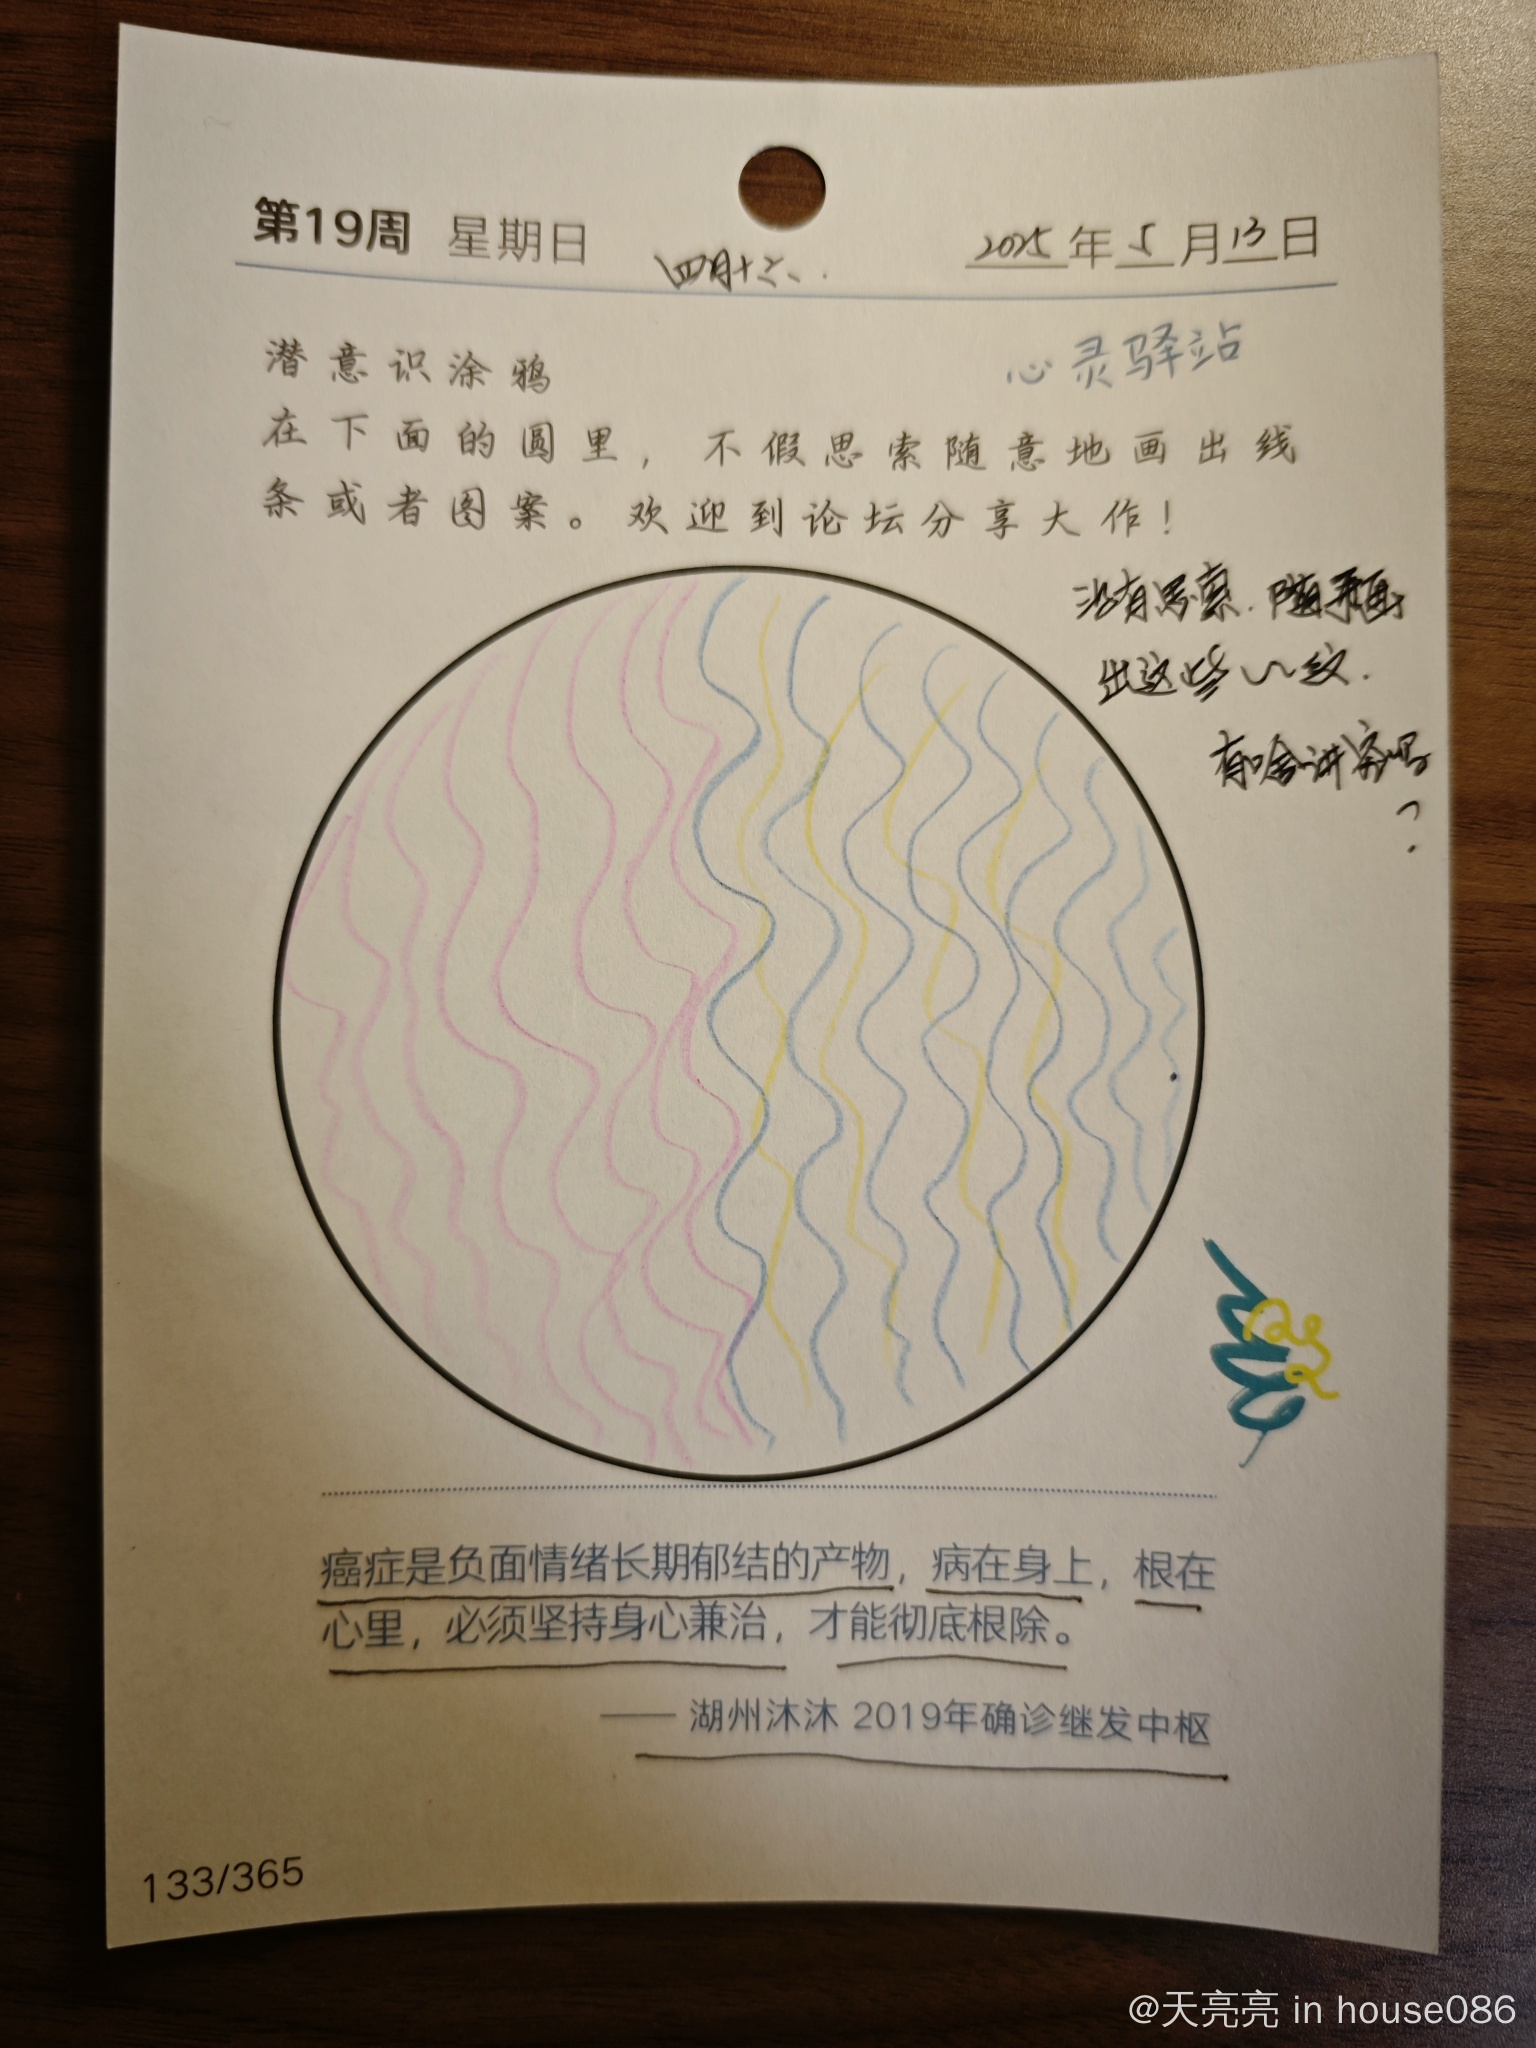 第19周 星期日
四月十六
2025年5月13日
潜意识涂鸦
心灵驿站
在下面的圆里，不假思索随意地画出线
条或者图案。欢迎到论坛分享大作！
没有思索.随手画
出这些～纹.
有啥讲究吗
?
癌症是负面情绪长期郁结的产物，病在身上，根在
心里，必须坚持身心兼治，才能彻底根除。
—— 湖州沐沐 2019年确诊继发中枢
133/365
@天亮亮 in house086